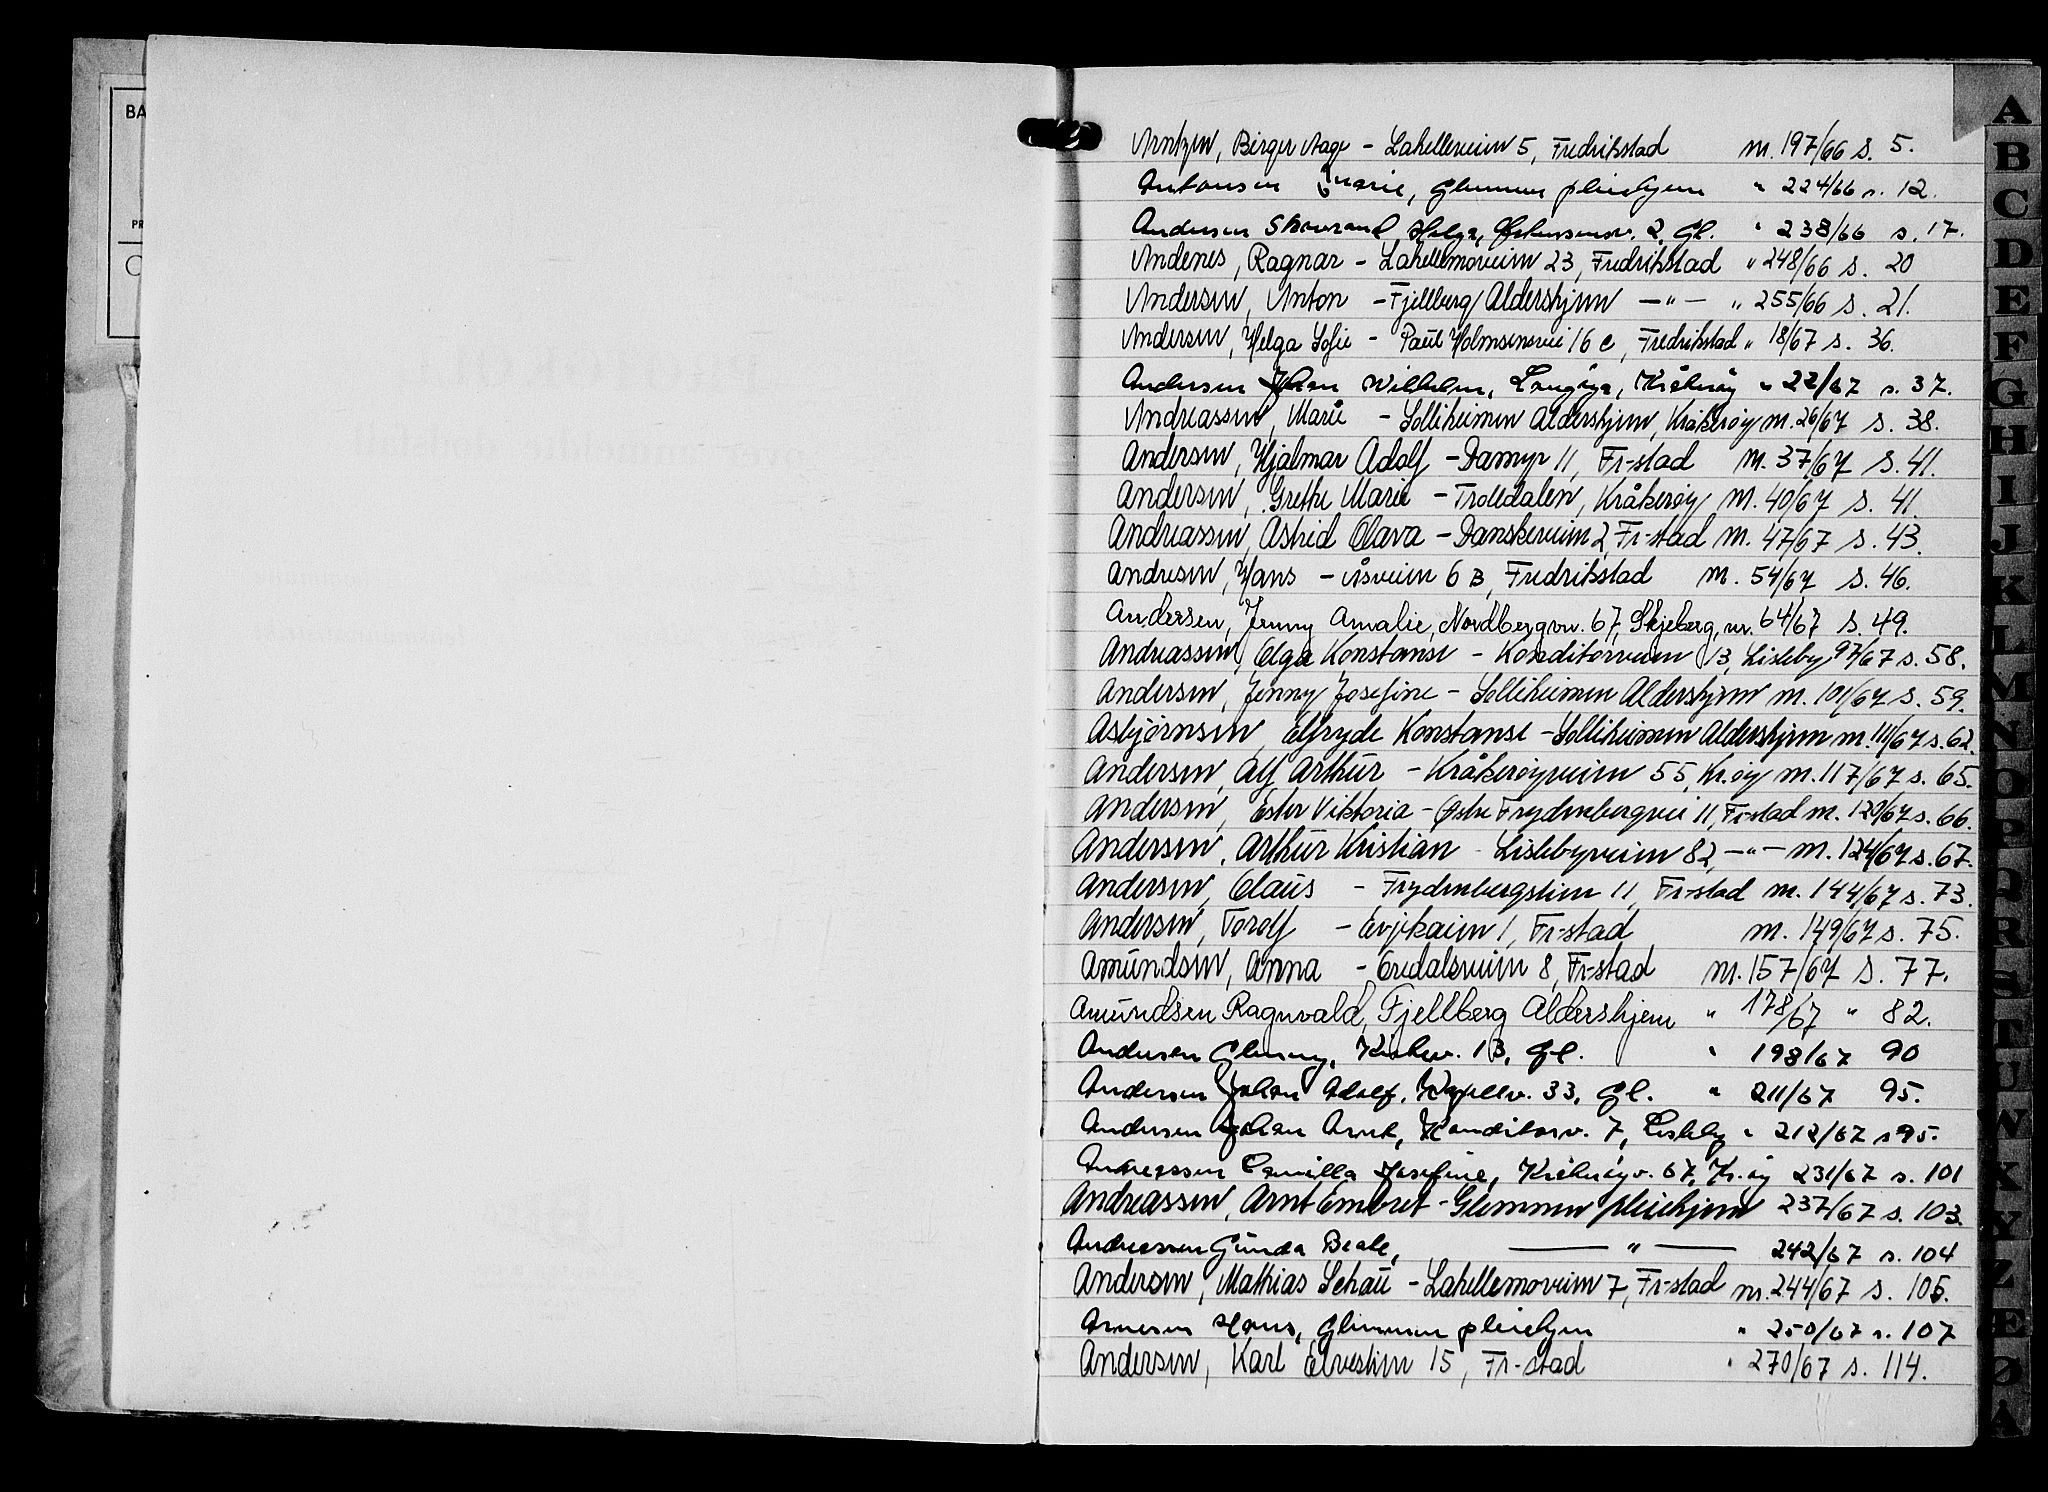 BA
PR
Arntzen, Birger Aage - Lahelleveien 5, Fredrikstad m. 197/66 s. 5.
Antonsen Marie, Glemmen pleiehjem " 224/66 s. 12.
Andersen Helga, 2, Gl. " 238/66 s. 17.
Andenes, Ragnar - Lahellemoveien 23, Fredrikstad " 248/66 s. 20
Andersen, Anton - Fjellberg Aldershjem — " — " 255/66 s. 21.
Andersen, Helga Sofie - Paul Holmsensvei 16 c, Fredrikstad " 18/67 s. 36.
Andersen Johan Wilhelm, Kråkerøy " 22/67 s. 37.
Andreassen, Marie - Solliheimen Aldershjem, Kråkerøy m. 26/67 s. 38.
Andersen, Hjalmar Adolf - Damyr 11, Fr-stad m. 37/67 s. 41.
Andersen, Grethe Marie - Trolldalen, Kråkerøy m. 40/67 s. 41.
Andreassen, Astrid Olava - Danskeveien 2, Fr-stad m. 47/67 s. 43.
Andresen, Hans - Åsveien 6 B, Fredrikstad m. 54/67 s. 46.
Andersen, Jenny Amalie, Nordbergvn. 67, Skjeberg, nr. 64/67 s. 49.
Andreassen, Olga Konstanse - Konditorveien 13, Lisleby 97/67 s. 58.
Andersen, Jenny Josefine - Solliheimen Aldershjem m. 101/67 s. 59.
Asbjørnsen, Elfryde Konstanse - Solliheimen Aldershjem m. 111/67 s. 62.
Andersen, Alf Arthur - Kråkerøyveien 55, Kr.øy m. 117/67 s. 65.
Andersen, Ester Viktoria - Østre Frydenbergvei 11, Fr-stad m. 120/67 s. 66.
Andersen, Arthur Kristian - Lislebyveien 82, — " — m. 124/67 s. 67.
Andersen, Claus - Frydenbergstien 11, Fr-stad m. 144/67 s. 73.
Andersen, Torolf - Evjekaien 1, Fr-stad m. 149/67 s. 75.
Amundsen, Anna - Oredalsveien 8, Fr-stad m. 157/67 s. 77.
Amundsen Ragnvald, Fjellberg Aldershjem " 178/67 " 82.
Andersen Glenny, Kirkev. 13, Gl. " 198/67 90
Andersen Johan Adolf, Kapellv. 33, Gl. " 211/67 95.
Andersen Johan Arnt, Konditorv. 7, Lisleby " 212/67 s 95.
Andreassen Camilla Josefine, Kråkerøyv. 67, Kr.øy 231/67 s. 101
Andreassen, Arnt Embret - Glemmen pleiehjem 237/67 s. 103.
Andreassen Gunda Beate, — " — 242/67 s. 104
Andersen, Mathias Schau - Lahellemoveien 7, Fr-stad m. 244/67 s. 105.
Arnesen Hans, Glemmen pleiehjem " 250/67 s. 107
Andersen, Karl Elvestien 15, Fr-stad " 270/67 s. 114.
A
B
C
D
E
F
G
H
I
J
K
L
M
N
O
P
Q
R
S
T
U
V
X
Y
Z
Æ
Ø
Å